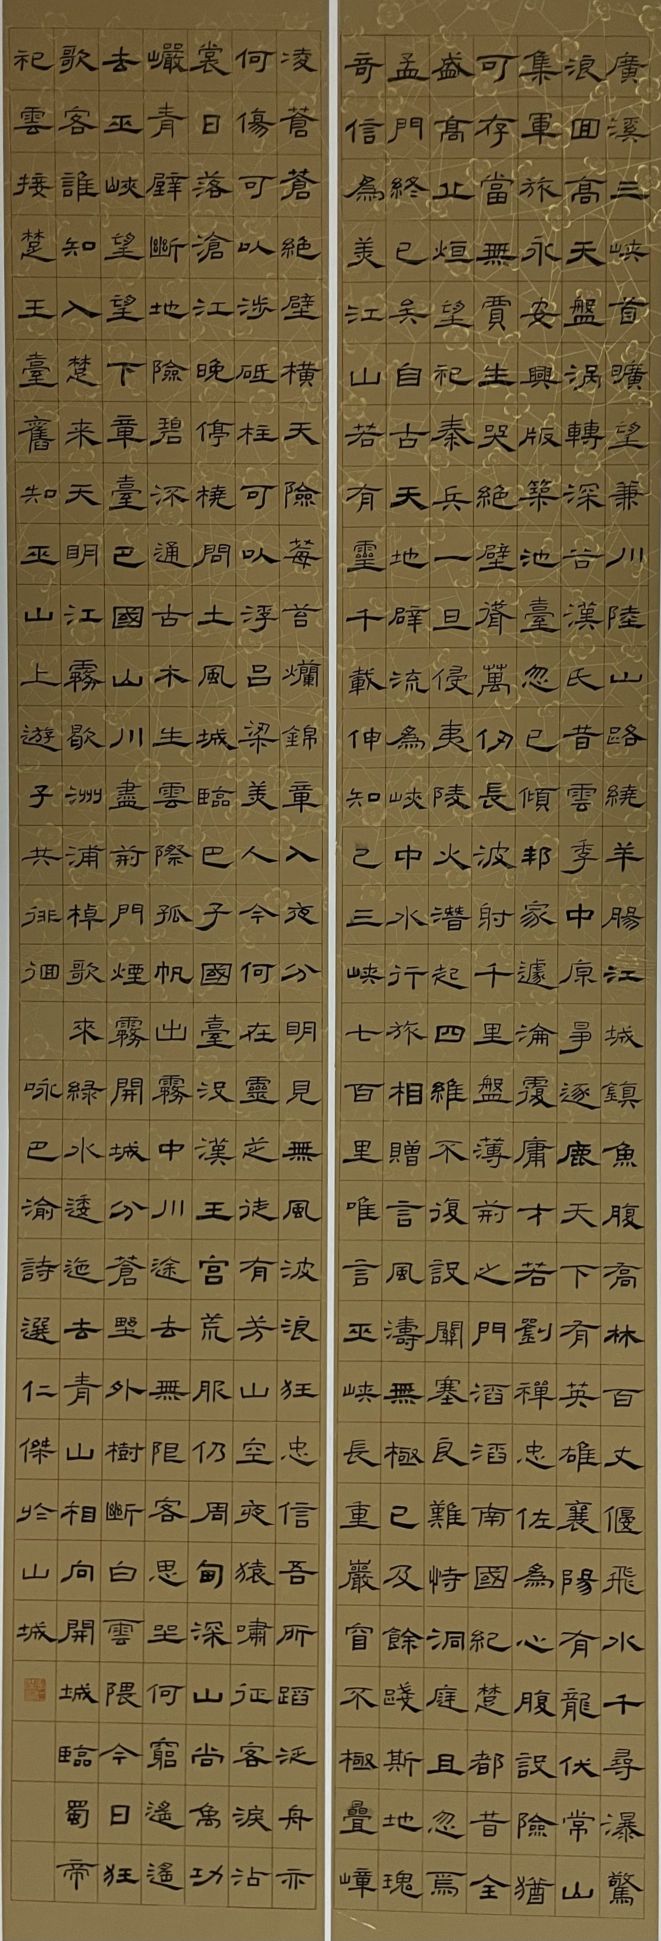 廣溪三峽首曠望兼川陸山路繞羊腸江城鎮魚腹喬林百丈偃飛水千尋瀑驚
浪回高天盤渦轉深谷漢氏昔雲季中原爭逐鹿天下有英雄襄陽有龍伏常山
集軍旅永安興版築池臺忽已傾邦家遽淪覆庸才若劉禪忠佐為心腹設險猶
可存當無賈生哭絕壁聳萬仞長波射千里盤薄荊之門滔滔南國紀楚都昔全
盛高丘烜望祀秦兵一旦侵夷陵火潛起四維不復設關塞良難恃洞庭且忽焉
孟門終已矣自古天地辟流為峽中水行旅相贈言風濤無極已及餘踐斯地瑰
奇信為美江山若有靈千載伸知己三峽七百里唯言巫峽長重巖窅不極疊嶂
凌蒼蒼絕壁橫天險莓苔爛錦章入夜分明見無風波浪狂忠信吾所蹈泛舟亦
何傷可以涉砥柱可以浮呂梁美人今何在靈芝徒有芳山空夜猿嘯征客淚沾
裳日落滄江晚停橈問土風城臨巴子國臺沒漢王宮荒服仍周甸深山尚禹功
巘青壁斷地險碧深通古木生雲際孤帆出霧中川途去無限客思坐何窮遙遙
去巫峽望望下章臺巴國山川盡荊門煙霧開城分蒼野外樹斷白雲隈今日狂
歌客誰知入楚來天明江霧歇洲浦棹歌來綠水逶迤去青山相向開城臨蜀帝
祀雲接楚王臺舊知巫山上遊子共徘徊 咏巴渝詩選仁傑於山城